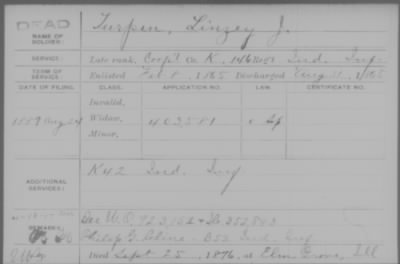 DEAD
NAME OF SOLDIER: Turpen, Linzey J.
SERVICE: Late rank, Corp'l Co. K, 146 Regt Ind. Inf.
TERM OF SERVICE: Enlisted Feb 8, 1865 Discharged Aug 31, 1865
DATE OF FILING. CLASS. APPLICATION NO. LAW CERTIFICATE NO.
Invalid,
1889 Aug 24 Widow, 403,581
Minor,
ADDITIONAL SERVICES: K 42 Ind. Inf
See W.O. 923,152 + 352,803
REMARKS: Philip G. B 53 Ind. Inf
Died Sept 25, 1876, at Elm Grove, Ill